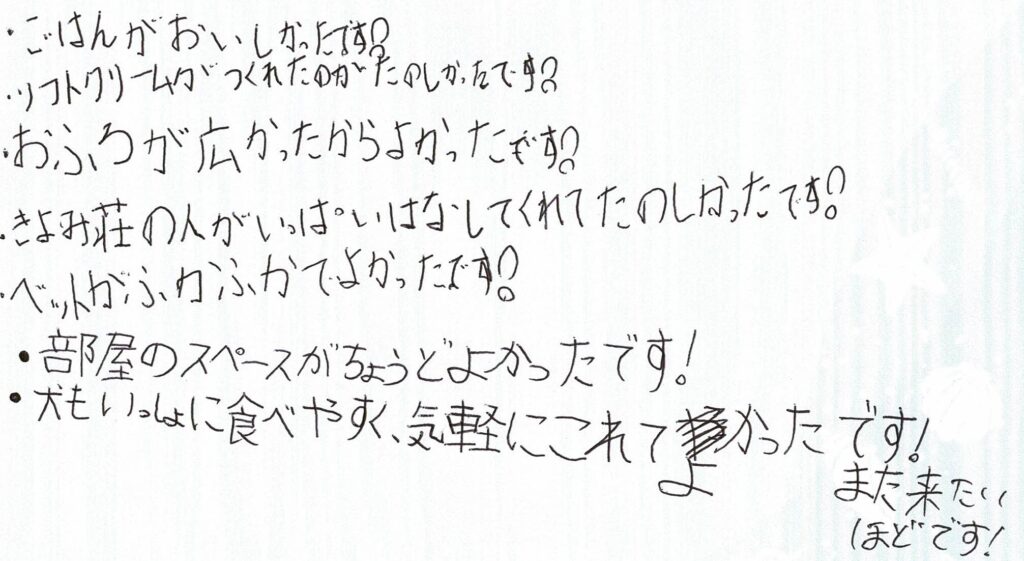 ・ごはんがおいしかったです!
・ソフトクリームがつくれたのがたのしかったです!
・おふろが広かったからよかったです!
・きよみ荘の人がいっぱいはなしてくれてたのしかったです!
・ベットがふかふかでよかったです!
・部屋のスペースがちょうどよかったです!
・犬もいっしょに食べやすく、気軽にこれてよかったです!
また来たい
ほどです!